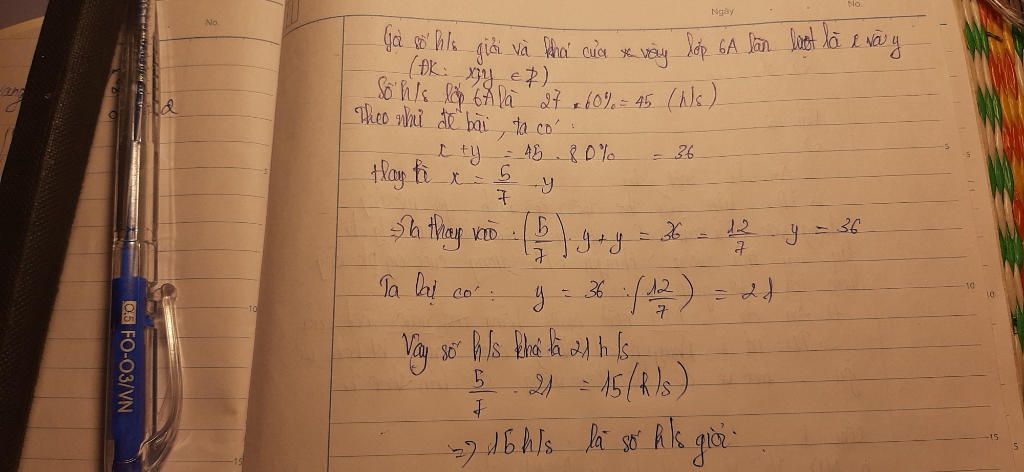 No.
Ngày
No.
Gọi số h/s giỏi và khá của lớp 6A lần lượt là x và y
(ĐK: x;y ∈
Số h/s lớp 6A là 27 . 60% = 45 (h/s)
Theo như đề bài, ta có:
x + y = 45 . 80% = 36
Hay là x = 5/7 . y
=> Ta thay vào: (5/7) . y + y = 36 = 12/7 . y = 36
Ta lại có: y = 36 : (12/7) = 21
Vậy số h/s khá là 21 h/s
5/7 . 21 = 15 (h/s)
=> 15 h/s là số h/s giỏi.
0.5 FO-03/VN